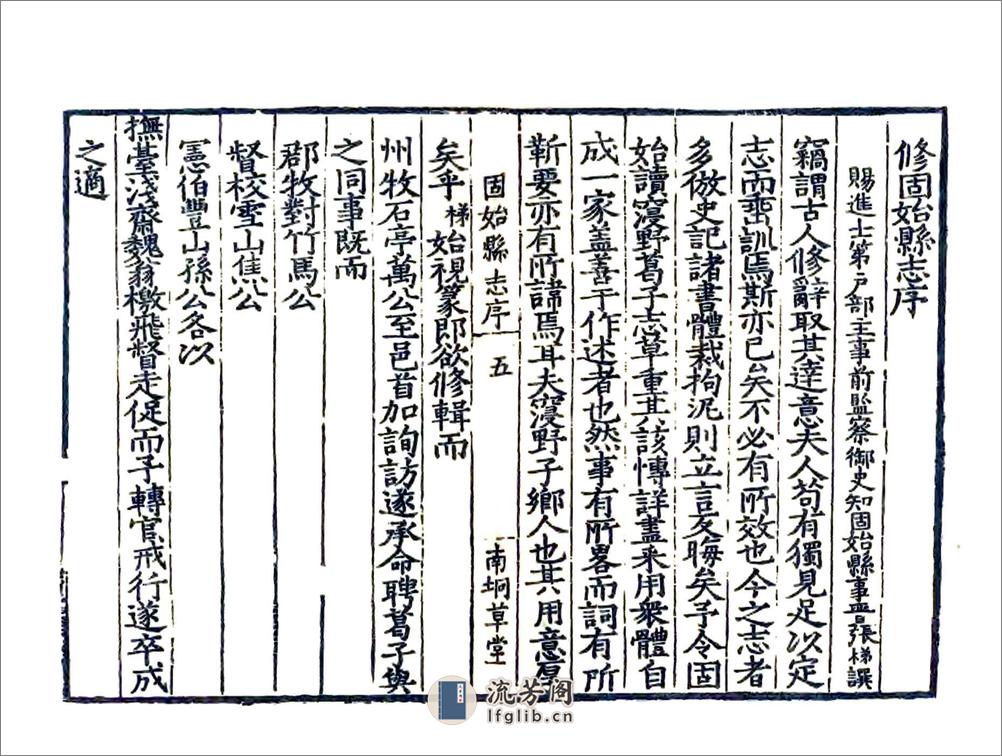 修固始縣志序
賜進士第戶部主事前監察御史知固始縣事張梯譔
竊謂古人修辭取其達意夫人苟有獨見足以定
志而垂訓焉斯亦已矣不必有所效也今之志者
多倣史記諸書體裁拘泥則立言反晦矣予令固
始讀寖野葛子志草重其該慱詳盡采用衆體自
成一家盖善于作述者也然事有所畧而詞有所
靳要亦有所諱焉耳夫寖野子鄉人也其用意厚
固始縣志序 五 南坰草堂
矣乎梯始視篆即欲修輯而
州牧石亭萬公至邑首加詢訪遂承命聘葛子與
之同事既而
郡牧對竹馬公
督校雪山焦公
憲伯豐山孫公各以
撫臺淺齋魏翁檄飛督走促而予轉官戒行遂卒成
之適
流芳阁
lfglib.cn